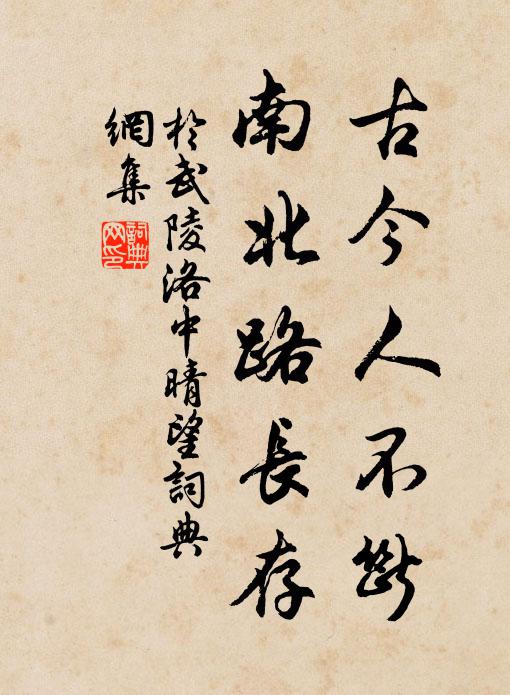 古今人不斷
南北路長存
於武陵洛中晴望詞典
網集
詞典
网印